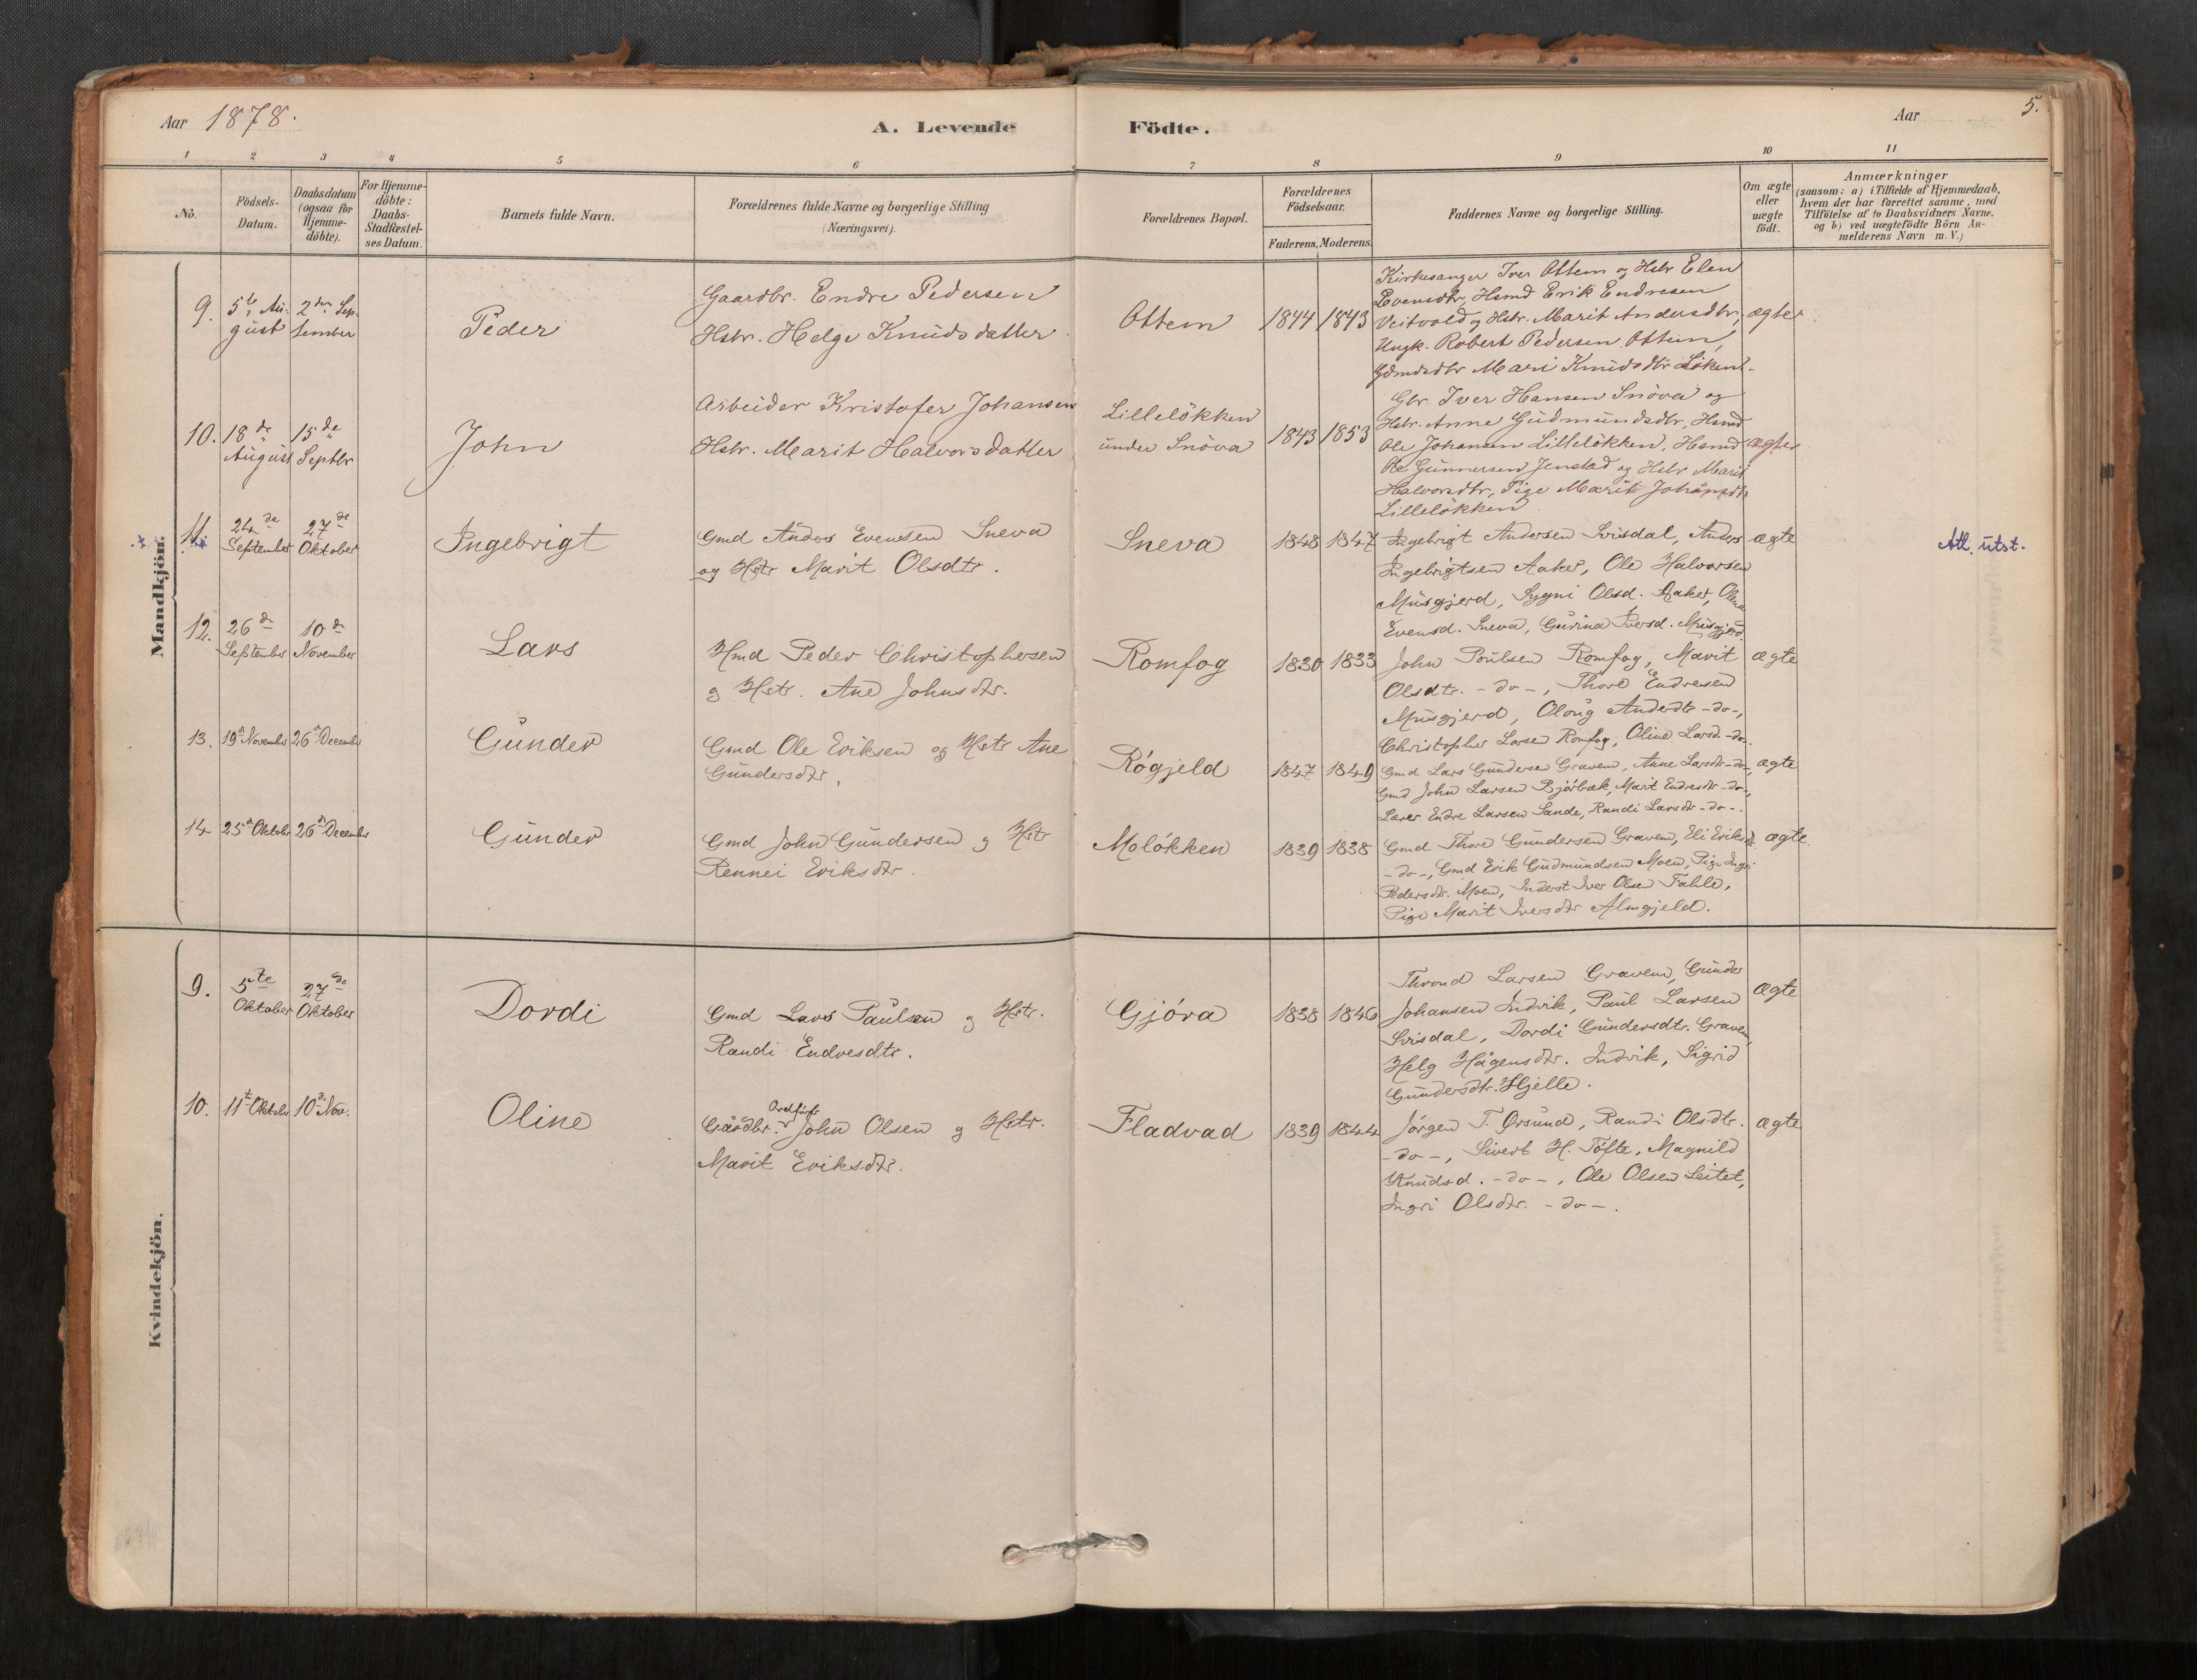 Aar 1878.
A. Levende Födte.
Aar
5.
1 2 3 4 5 6 7 8 9 10 11
No.
Födsels-
Datum.
Daabsdatum
(ogsaa for
Hjemme-
döbte).
For Hjemme-
döbte:
Daabs-
Stadfæstel-
ses Datum.
Barnets fulde Navn.
Forældrenes fulde Navne og borgerlige Stilling
(Næringsvei).
Forældrenes Bopæl.
Forældrenes
Födselsaar.
Faderens. Moderens.
Faddernes Navne og borgerlige Stilling.
Om ægte
eller
uægte
födt.
Anmærkninger
(saasom: a) i Tilfælde af Hjemmedaab,
hvem der har forrettet samme, med
Tilföielse af to Daabsvidners Navne.
og b) ved uægtefödte Börn An-
melderens Navn m.V.)
Mandkjön.
9.
5te Au-
gust
2den Sep-
tember
Peder
Gaardbr. Endre Pedersen
Hstr. Helge Knudsdatter
Ottem
1844 1843
Kirkesanger Iver Ottem og Hstr Elen
Evensdtr, Hsmd Erik Endresen
Veitvold og Hstr. Marit Andersdtr,
Ungk. Robert Pedersen Ottem,
Gdmdsdtr Mari Knudsdtr Löken.
ægte
10.
18de
August
15de
Septbr
John
Arbeider Kristofer Johansen
Hstr. Marit Halvorsdatter
Lillelökken
under Snöva
1843 1853
Gbr. Iver Hansen Snöva og
Hstr. Anne Gudmundsdtr, Hsmd
Ole Johansen Lillelökken, Hsmd
Ole Gunnersen Jenstad og Hstr Marit
Halvorsdtr, Pige Marit Johansdtr
Lillelökken
ægte
11.
24de
September
27de
Oktober
Ingebrigt
Gmd Anders Evensen Sneva
og Hstr Marit Olsdtr.
Sneva
1848 1847
Ingebrigt Andersen Svisdal, Anders
Ingebrigtsen Aaker, Ole Halvorsen
Musgjerd, Sygni Olsd. Aaker, Olena
Evensd. Sneva, Gurina Iversd. Musgjerd.
ægte
Att. utst.
12.
26de
September
10de
November
Lars
Hmd Peder Christophersen
og Hstr. Ane Johnsdtr.
Romfog
1830 1833
John Poulsen Romfog, Marit
Olsdtr. -do-, Thore Endresen
Musgjerd, Oloug Andersdtr -do-,
Christopher Larsen Romfog, Oline Larsd. -do-.
ægte
13.
19de November
26de December
Gunder
Gmd Ole Eriksen og Hstr Ane
Gundersdtr.
Rógjeld
1847 1849
Gmd Lars Gundersen Gravem, Anne Larsdtr -do-,
Gmd John Larsen Bjórbæk, Marit Endresdtr -do-,
Lærer Endre Larsen Sande, Randi Larsdtr -do-.
ægte
14
25de Oktober
26de December
Gunder
Gmd John Gundersen og Hstr
Rennei Eriksdtr.
Molókken
1839 1838
Gmd Thore Gundersen Gravem, Eli Eriksdtr
-do-, Gmd Erik Gudmundsen Moen, Pige Ingri
Pedersdtr. Moen, Inderst Iver Olsen Fahle,
Pige Marit Iversdtr Almgjeld.
ægte.
Kvindekjön.
9.
5te
Oktober
27de
Oktober
Dordi
Gmd Lars Paulsen og Hstr.
Randi Endresdtr.
Gjóra
1838 1846
Thrond Larsen Gravem, Gunder
Johansen Indvik, Paul Larsen
Svisdal, Dordi Gundersdtr. Gravem,
Helg Hågensdtr. Indvik, Sigrid
Gundersdtr. Hjelle.
Ægte
10.
11te Oktober
10de Nov.
Oline
Ordfører
Gårdbr. John Olsen og Hstr.
Marit Eriksdtr.
Fladvad
1839 1844
Jórgen T. Ørsund, Randi Olsdtr.
-do-, Sivert H. Tófte, Magnild
Knudsd. -do-, Ole Olsen Leitet,
Ingri Olsdtr. -do-.
ægte